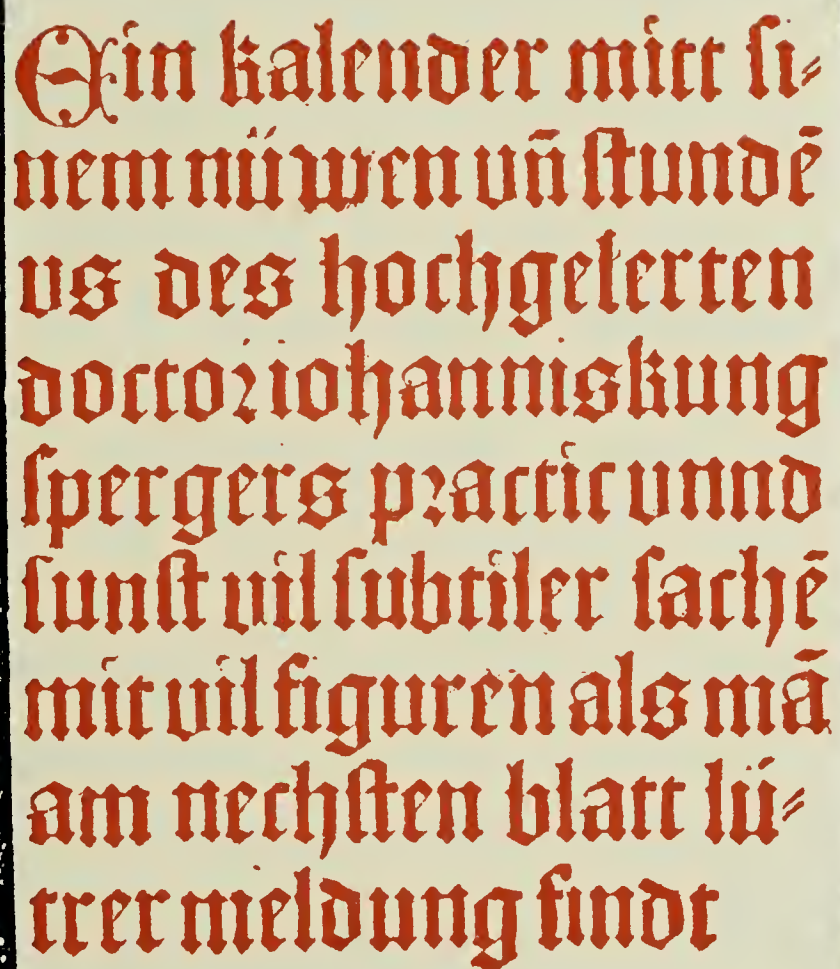 Ein kalender mitt ſi⸗
nem nüwen vñ ſtundē
vs des hochgelerten
doctor iohannis kung
ſpergers practic vnnd
ſunſt vil ſubtiler ſachē
mit vil figuren als mā
am nechſten blatt lü⸗
trer meldung findt